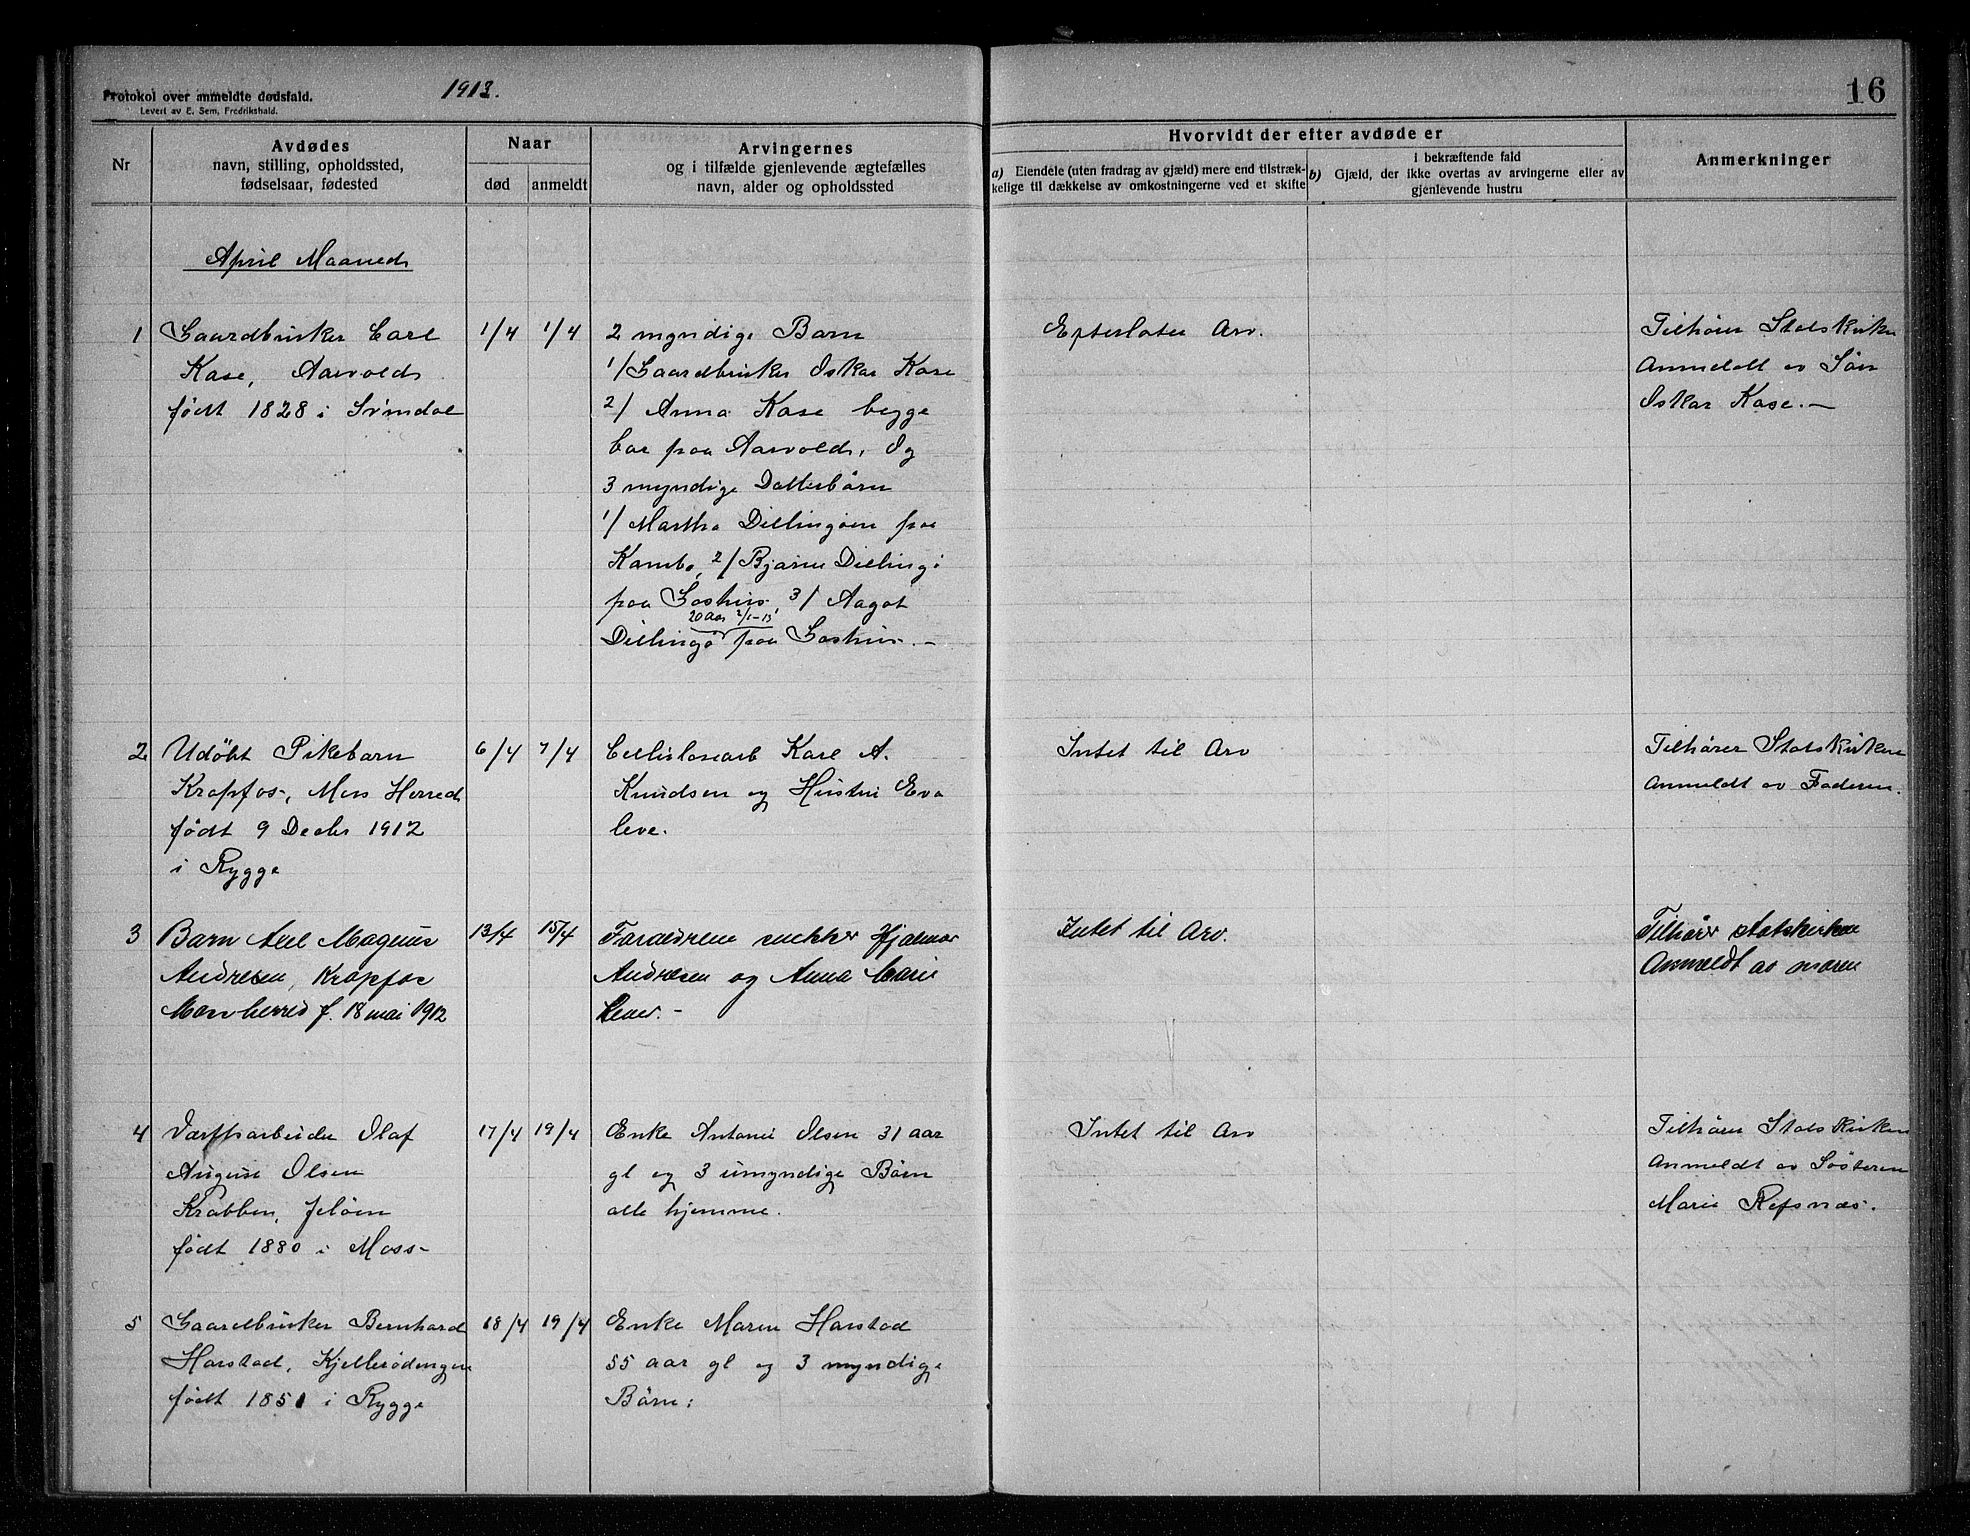 Protokol over anmeldte dødsfald.
Levert av E. Sem, Fredrikshald.
1913.
16
Nr
Avdødes
navn, stilling, opholdssted,
fødselsaar, fødested
Naar
død
anmeldt
Arvingernes
og i tilfælde gjenlevende ægtefælles
navn, alder og opholdssted
Hvorvidt der efter avdøde er
a) Eiendele (uten fradrag av gjæld) mere end tilstræk-
kelige til dækkelse av omkostningerne ved et skifte
I bekræftende fald
b) Gjæld, der ikke overtas av arvingerne eller av
gjenlevende hustru
Anmerkninger
April Maaned
1
Gaardbruker Carl
Kase, Aarvold
født 1828 i Svindal
1/4
1/4
2 myndige Barn
1/ Gaardbruker Oskar Kase
2/ Anna Kase begge
bor paa Aarvold. Og
3 myndige Datterbörn
1/ Martha Dillingöen paa
Kambo, 2/ Bjarne Dilling
paa Goshus, 3/ Aagot
20 aar 2/1-13
Dillingö paa Goshus. –
Efterlater Arv.
Tilhörer Statskirken
Anmeldt av Sön
Oskar Kase. –
2
Udöbt Pikebarn
Krapfos, Moss Herred
født 9 Decbr 1912
i Rygge
6/4
7/4
Cellulosearb Karl A.
Knudsen og Hustru Eva
leve.
Intet til Arv
Tilhører Statskirken
Anmeldt av Faderen.
3
Barn Axel Magnus
Andresen, Krapfos
Moss herred f. 18 mai 1912
13/4
15/4
Forældrene snekker Hjalmar
Andresen og Anna Marie
lever. –
Intet til Arv.
Tilhörer statskirken
Anmeldt av moren
4
Værftsarbeider Olaf
August Olsen
Krabben, Jelöen
født 1880 i Moss –
17/4
19/4
Enke Antonie Olsen 31 aar
gl og 3 umyndige Börn
alle hjemme.
Intet til Arv
Tilhörer Statskirken
Anmeldt av Sösteren
Marie Refsnæs.
5
Gaardbruker Bernhard
Harstad, Kjelleródengen
født 1851 i Rygge
18/4
19/4
Enke Maren Harstad
55 aar gl og 3 myndige
Börn: